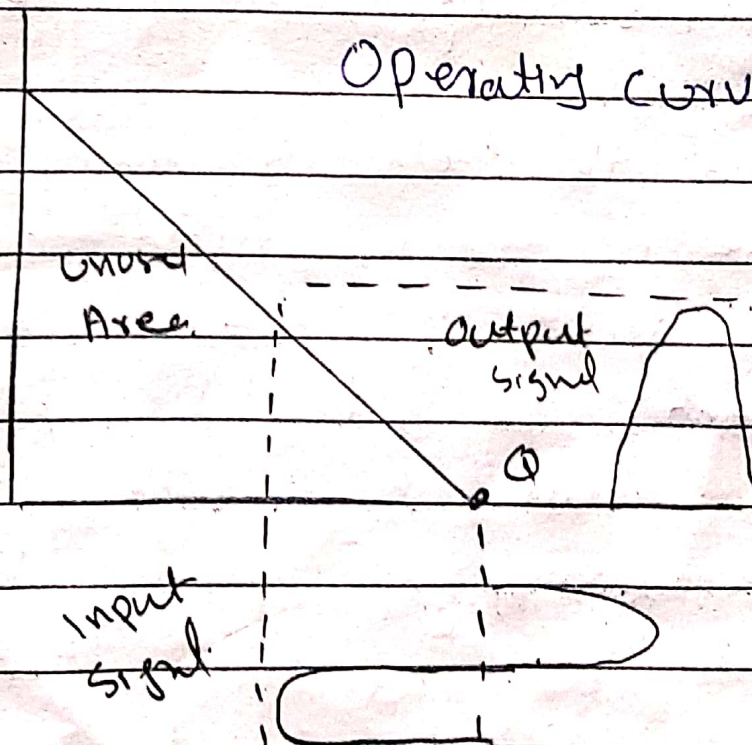 Operating Curv
Unused
Area
Output
signal
Q
Input
signal.